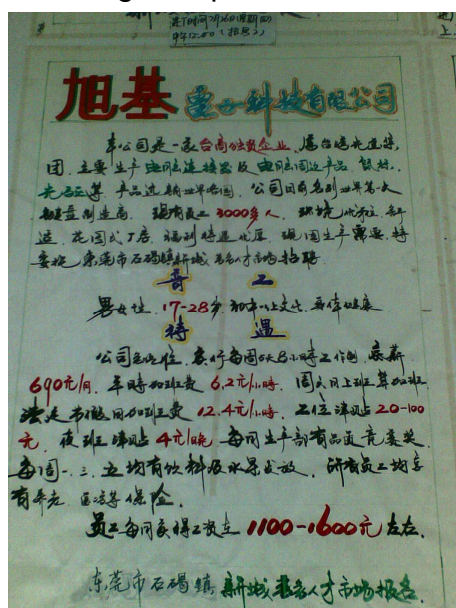 旭基電子科技有限公司
本公司是一家台商独资企业,属台
团,主要生产电脑连接器及电脑周边产品,鼠标,
等,产品
制造商,现有员工3000多人,环境
造,花园式厂房,福利待遇优厚,现因生产需要,特
委托东莞市石碣镇新城
人才市场招聘
普工
男女性,17-28岁,初中以上文化,身体健康
待遇
公司包吃住,实行每周5天8小时工作制,底薪
690元/月,平时加班费6.2元/小时,周六日上班算加班
法定节假日加班费12.4元/小时,工位津贴20-100
元,夜班津贴4元/晚,每月生产部有品质竞赛奖,
每周一、三、五均有饮料及水果发放,所有员工均享
有养老、医疗等保险。
员工每月获得工资在1100-1600元左右。
东莞市石碣镇新城
人才市场报名